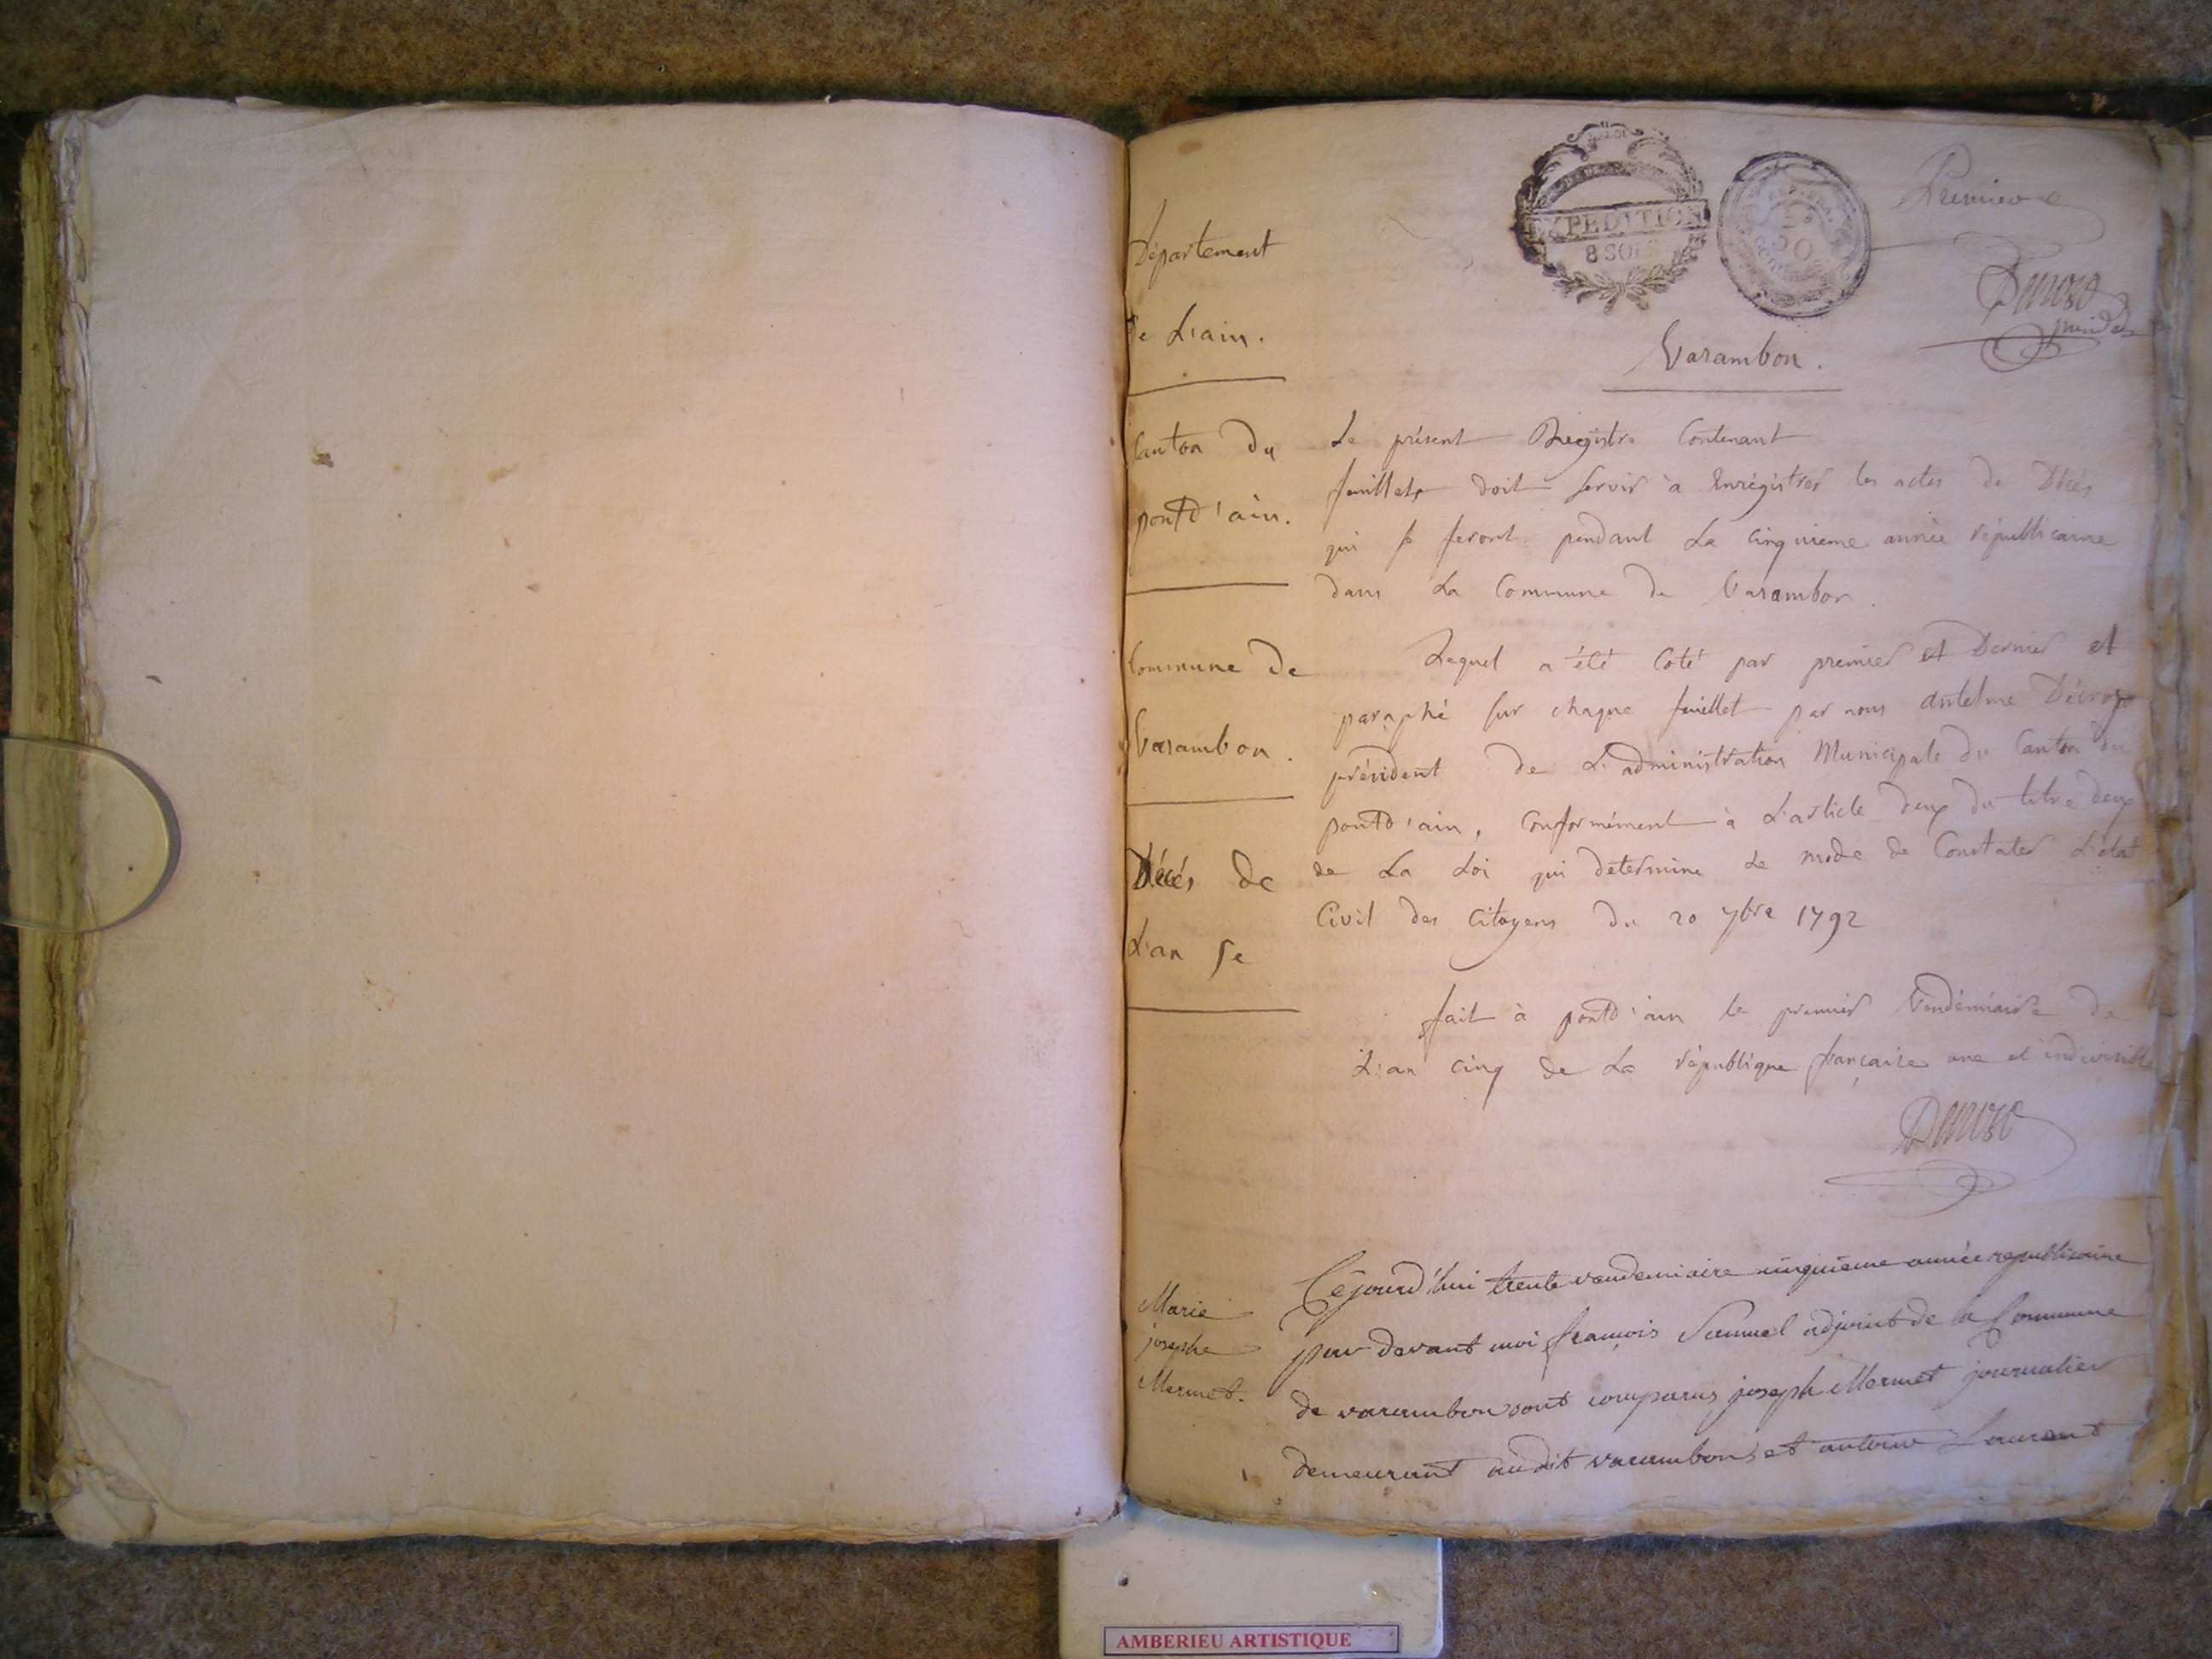 EXPEDITION
8 SOLS
50
Premier
Décrozo
présidt
Département
De L'ain.
Varambon.
Canton du
pontd'ain.
Commune de
Varambon.
Décés de
L'an 5e
Le présent Registre Contenant
feuillets doit servir à Enrégistrer les actes de Décés
qui se feront pendant La cinquieme année républicaine
dans La Commune de Varambon.
Lequel a été Coté par premier et Dernier et
paraphé sur chaque feuillet par nous antelme
président de L'administration Municipale du Canton du
pontd'ain, Conformément à L'article deux du titre deux
de La Loi qui détermine Le mode de Constater L'état
Civil des Citoyens du 20 7bre 1792
fait à pontd'ain le premier Vendémiaire de
L'an cinq de La république française une et indivisible
Marie
josephe
Mermet.
Cejourd'hui trente vendemiaire cinquieme année republicaine
par devant moi françois Samuel adjoint de la Commune
de varambon sont comparus joseph Mermet journalier
demeurant audit varambon et antoine Laurent
AMBERIEU ARTISTIQUE